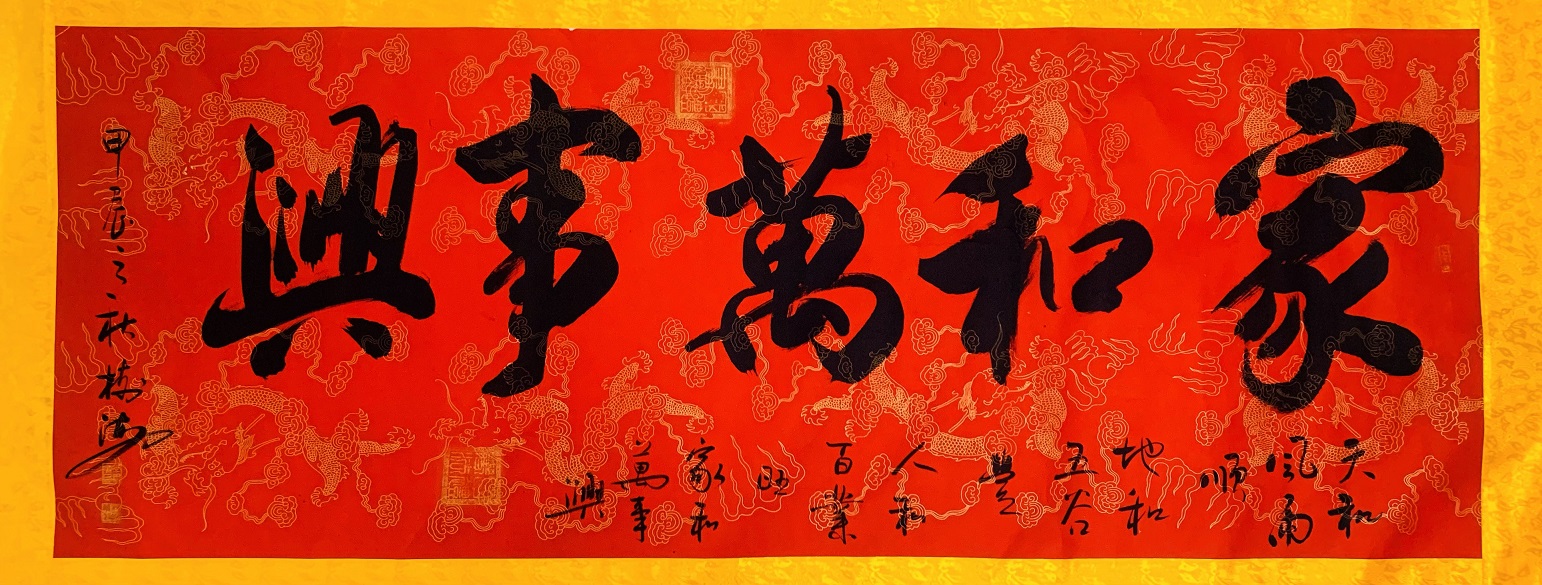 家和萬事興
天和
風雨
順
地和
五谷
豐
人和
百業
旺
家和
萬事
興
甲辰之秋